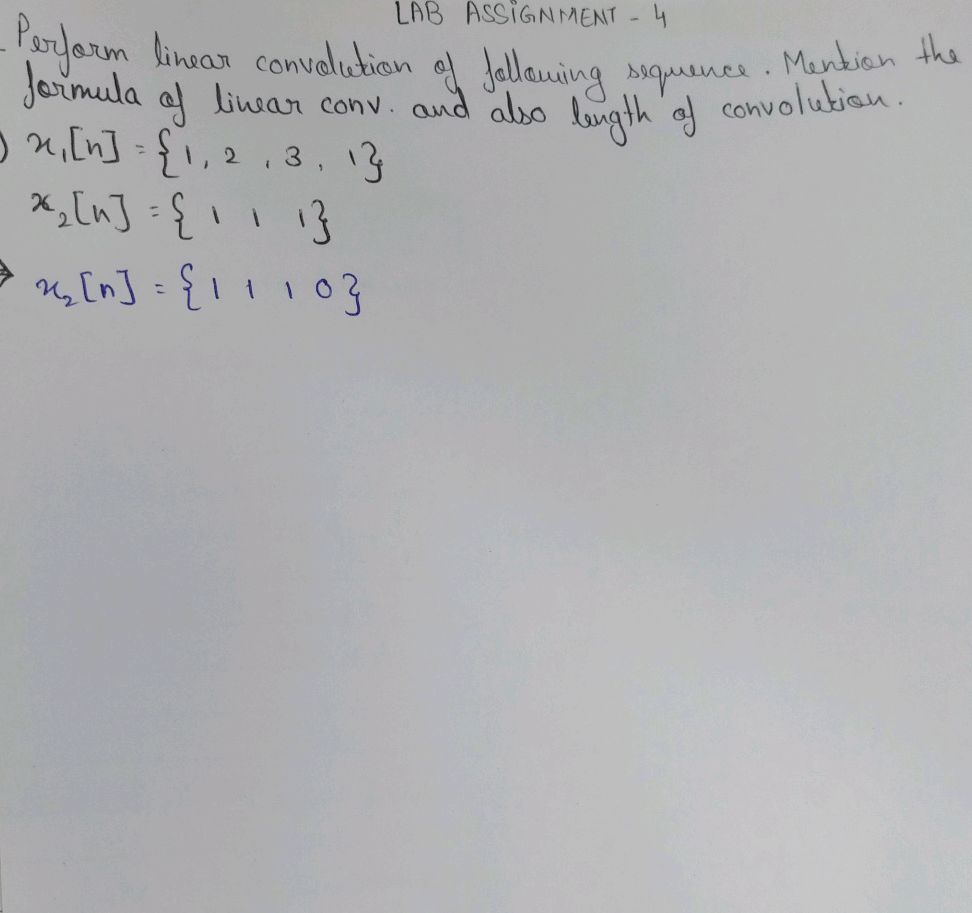 LAB ASSIGNMENT - 4
Perform linear convolution of following sequence. Mention the
formula of linear conv. and also length of convolution.
) x₁[n] = {1, 2, 3, 1}
x₂[n] = {1 1 1}
→ x₂[n] = {1 1 1 0}